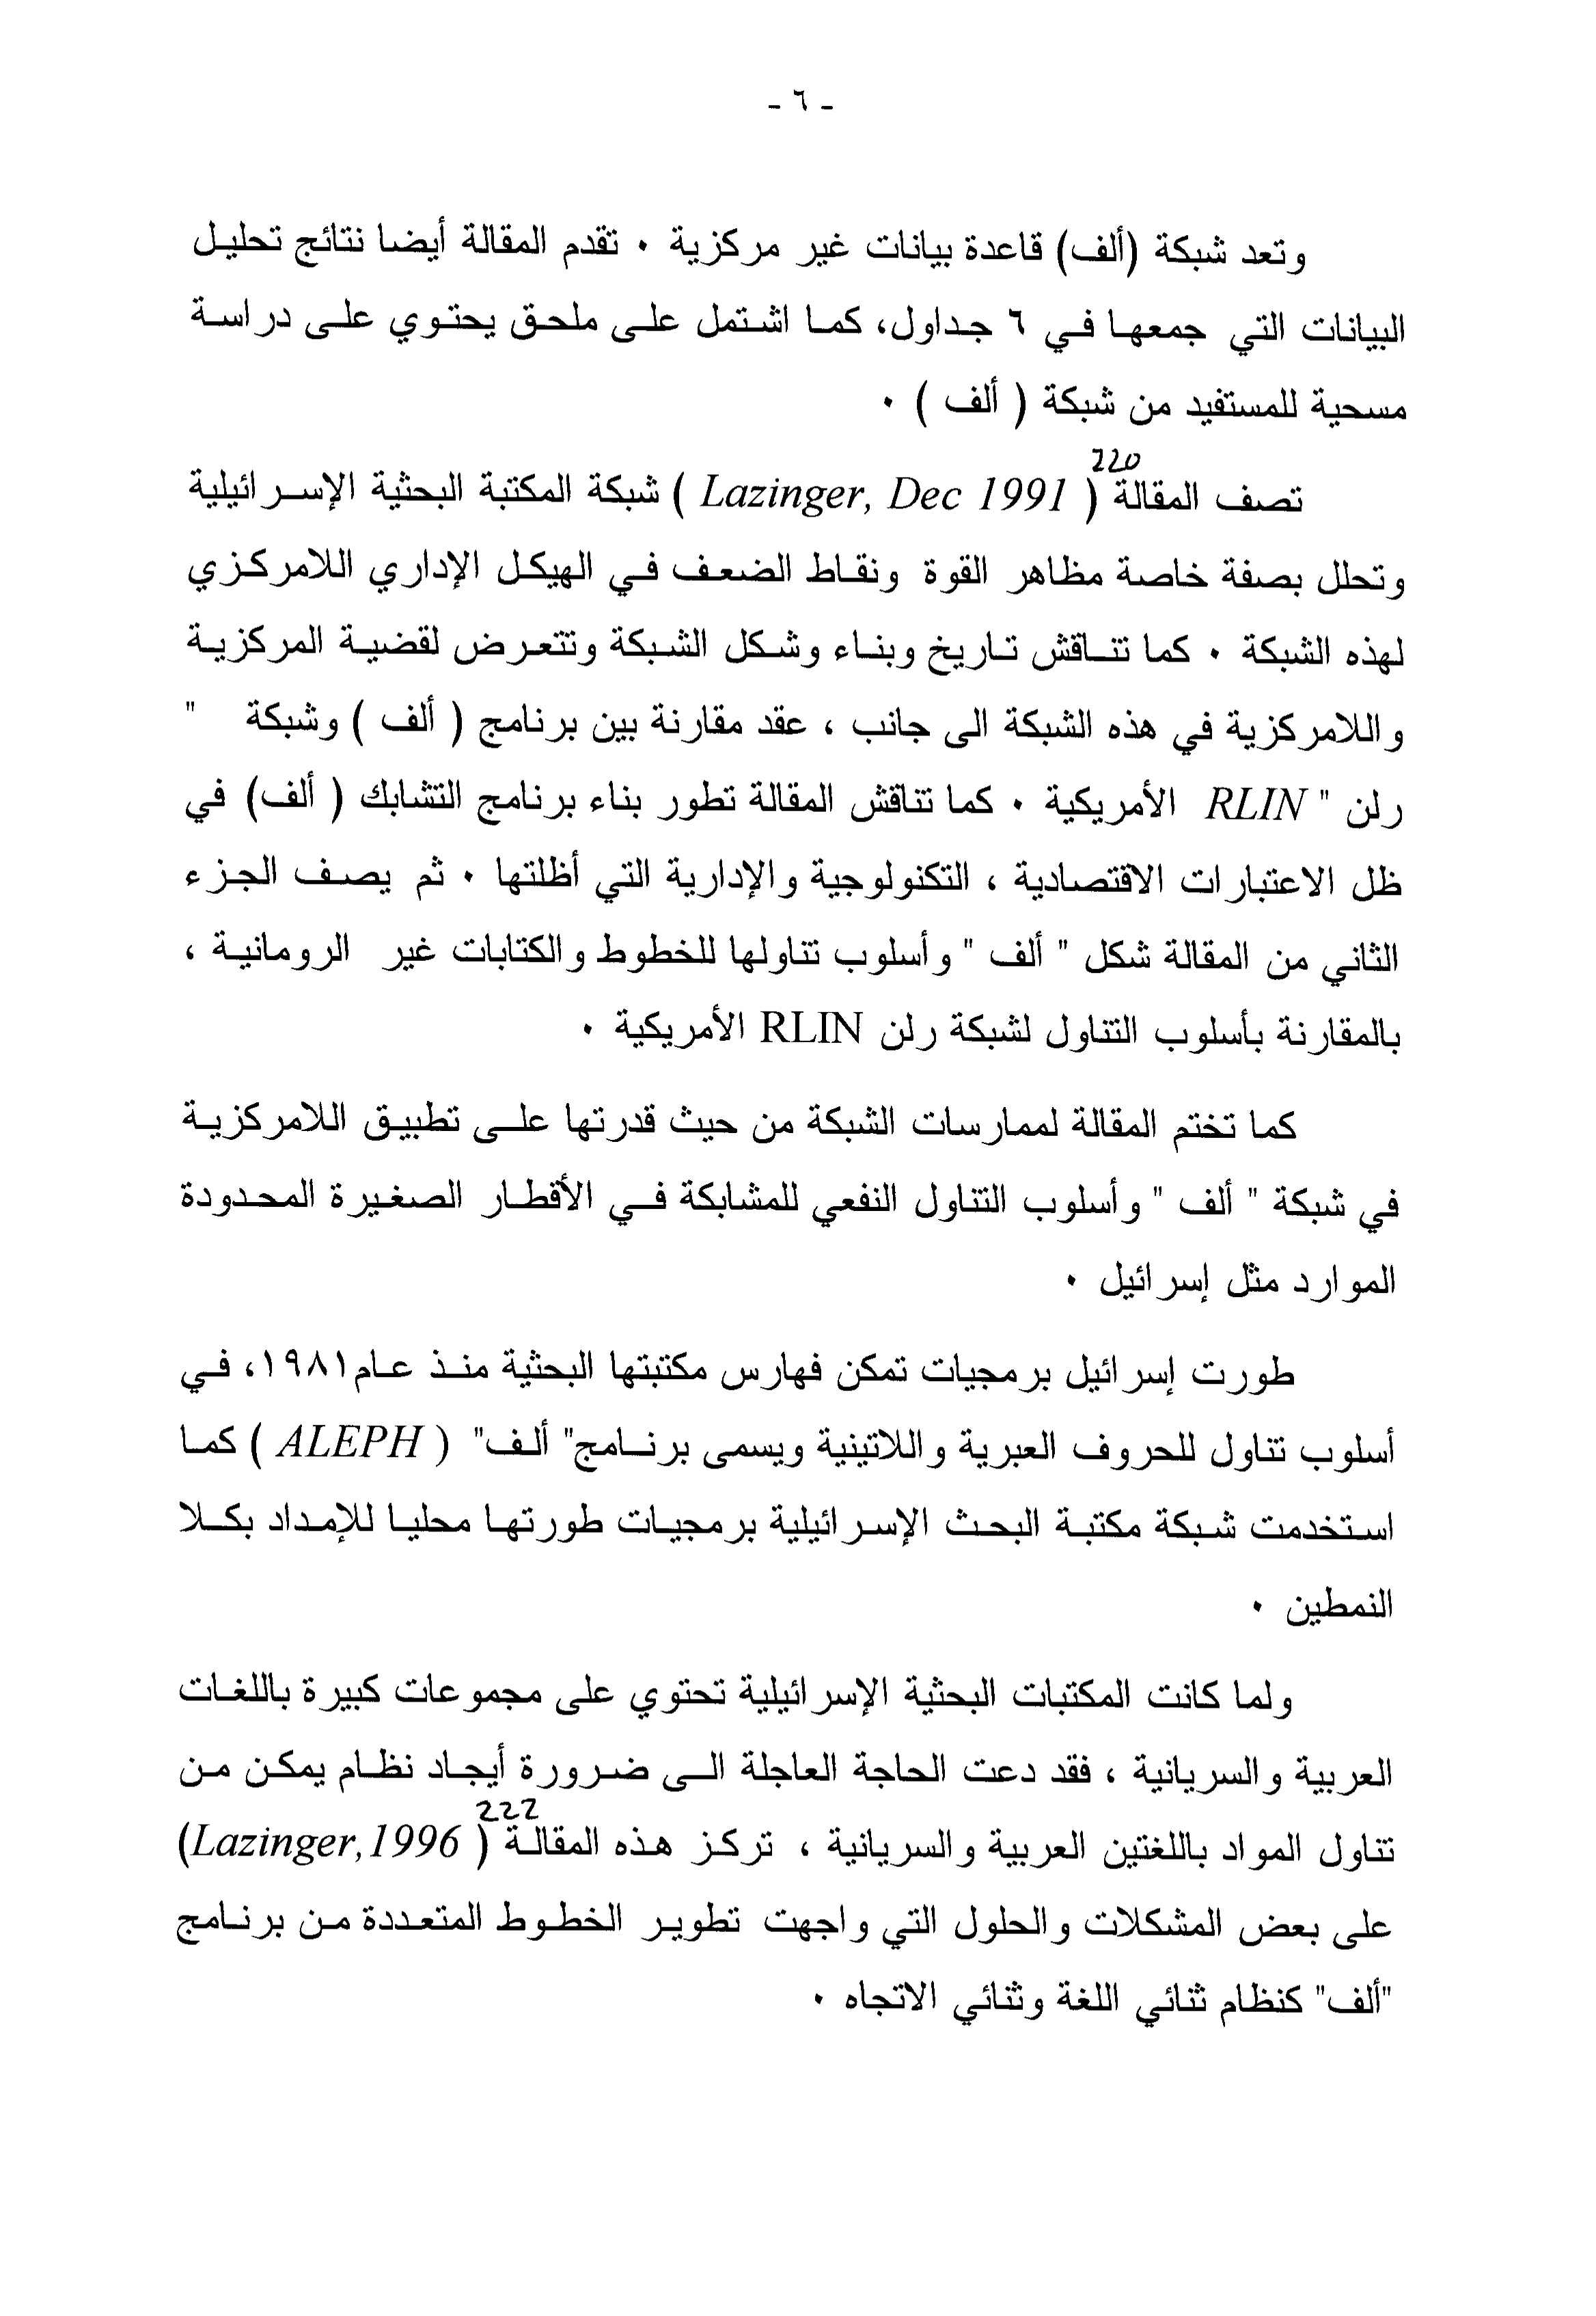 - ٦ -
وتعد شبكة (ألف) قاعدة بيانات غير مركزية ٠ تقدم المقالة أيضا نتائج تحليل
البيانات التي جمعها في ٦ جداول، كما اشتمل على ملحق يحتوي على دراسة
مسحية للمستفيد من شبكة ( ألف ) ٠
220
تصف المقالة ( Lazinger, Dec 1991 ) شبكة المكتبة البحثية الإسرائيلية
وتحلل بصفة خاصة مظاهر القوة ونقاط الضعف في الهيكل الإداري اللامركزي
لهذه الشبكة ٠ كما تناقش تاريخ وبناء وشكل الشبكة وتتعرض لقضية المركزية
واللامركزية في هذه الشبكة الى جانب ، عقد مقارنة بين برنامج ( ألف ) وشبكة "
رلن " RLIN الأمريكية ٠ كما تناقش المقالة تطور بناء برنامج التشابك ( ألف) في
ظل الاعتبارات الاقتصادية ، التكنولوجية والإدارية التي أظلتها ٠ ثم يصف الجزء
الثاني من المقالة شكل " ألف " وأسلوب تناولها للخطوط والكتابات غير الرومانية ،
بالمقارنة بأسلوب التناول لشبكة رلن RLIN الأمريكية ٠
كما تختم المقالة لممارسات الشبكة من حيث قدرتها على تطبيق اللامركزية
في شبكة " ألف " وأسلوب التناول النفعي للمشابكة في الأقطار الصغيرة المحدودة
الموارد مثل إسرائيل ٠
طورت إسرائيل برمجيات تمكن فهارس مكتبتها البحثية منذ عام١٩٨١، في
أسلوب تناول للحروف العبرية واللاتينية ويسمى برنامج" ألف" ( ALEPH ) كما
استخدمت شبكة مكتبة البحث الإسرائيلية برمجيات طورتها محليا للإمداد بكلا
النمطين ٠
ولما كانت المكتبات البحثية الإسرائيلية تحتوي على مجموعات كبيرة باللغات
العربية والسريانية ، فقد دعت الحاجة العاجلة الى ضرورة أيجاد نظام يمكن من
222
تناول المواد باللغتين العربية والسريانية ، تركز هذه المقالة ( Lazinger,1996)
على بعض المشكلات والحلول التي واجهت تطوير الخطوط المتعددة من برنامج
"ألف" كنظام ثنائي اللغة وثنائي الاتجاه ٠